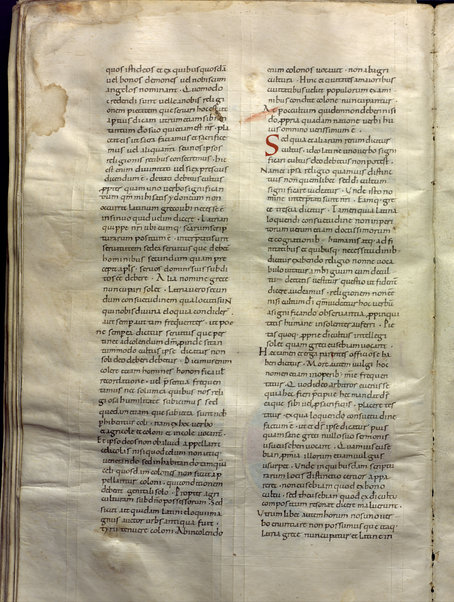 quos isti deos et ex quibus quosdā
uel bonos demones uel nobiscum
angelos nominant. Quomodo
credendi sunt uelle a nobis religi
onem pietatemque seruari hoc est ut
aptius dicam utrum etiam sibi an
tantum dō suo qui etiam nr̄ ē. pla
ceat eis ut sacra faciamus et sacrifice
mus uel aliqua nr̄a seu nos ipsos
religionis ritibus consecremus. hic
est enim diuinitati uel si expressius
dicendum ē. deitati debitus cultus.
propter quam uno uerbo significan
dum qm̄ mihi satis ydoneum non
occurrit latinum greco ubi necesse ē
insinuo quid uelim dicere. Latrian
quippe nr̄i ubicumq; scarum scrip
turarum positum ē. interpretati sunt
seruitutem. sed ea seruitus que debet̄
hominibus secundum quam pre
cepit apl̄s. seruos dominis suis subdi
tos esse debere. Alia nomine grece
nuncupari solet. Latria uero secun
dum consuetudinem qua locuti sunt
qui nobis diuina eloquia condider̄
aut semper aut tam frequenter. ut poe
ne semper dicitur seruitus que per
tinet ad colendum dm̄. proinde si tan
tummodo cultus ipse dicatur non
soli deo deberi uidetur. Dicimur enim
colere etiam homines honorifica uel
recordatione. uel p̄sentia frequen
tamus. nec solum ea quibus nos reli
giosa humilitate subicimus. sed
quedam etiam que subiecta sunt nob̄
phibentur coli. nam ex hoc uerbo
et agricole et coloni et incole uocant̄.
Et ipsos deos non ob aliud appellant
celicolas nisi quod celum colant. non utiq;
uenerando sed inhabitando tamquā
celi quosdam colonos. non sicut ap
pellantur coloni. qui condicionem
debent genitali solo. Propter agri
culturam sub dn̄io possessorum. Sed
sicut ait quidam latini eloquii ma
gnus auctor urbs antiqua fuit.
tyrii tenuere coloni. Ab incolendo
enim colonos uocauit. non ab agri
cultura. Hinc et ciuitates a maioribus
ciuitatibus uelut populorum exami
nibus condite colonie nuncupantur.
Ac p hoc cultum quidem non deberi nisi
dō. ppria quadam notione uerbi hu
ius omnino uerissimum ē.
Sed quia et aliarum rerum dicitur
cultus. ideo latine uno uerbo signi
ficari cultus deo debitus non potest.
Nam et ipsa religio quamuis distinc
tius non quemlibet sed dī cultum
significare uideatur. Unde isto no
mine interpretati sunt nr̄i
tamen quia latina
loquendi consuetudine non inperi
torum uerum etiam doctissimorum
et cognationib; humanis atq; adfi
nitatibus et quibusq; necessitudinib;
dicitur exhibenda religio non eo uoca
bulo uitatur ambiguum cum de cul
tu deitatis uertitur questio ut fidenter
dicere audeamus. religionem non eē
nisi cultum dī. qm̄ uidetur hoc uerbū
a significando obseruantia ppinqui
tatis humane insolenter auferri. Pie
tas quoq; pprie dī cultus intellegi
solet quam greci eusebian uocant.
Hec tamen et erga parentes officiose ha
beri dicitur. More autem uulgi hoc
nomen etiam in operib; misericordie frequen
tatur. Quod ideo arbitror euenisse
quia hec fieri precipue mandat ds̄
eaque sibi uel p sacrificiis placere tes
tatur. ex qua loquendi consuetudine
factum ē. ut et ds̄ ipse dicatur pius
quem sane greci nullo suo sermonis
usu euseben uocant. Quamuis euse
bian p mia illorum etiam uulgus
usurpet. Unde in quibusdam scriptu
rarum locis distinctio certior appa
reret. non eusebian quod ex bono
cultu. sed theosebian quod ex dī cultu
compositum resonat dicere maluerunt.
Utrumlibet autem horum nos uno uer
bo enuntiare non possumus que itaq;
latria grece nuncupatur et latine in